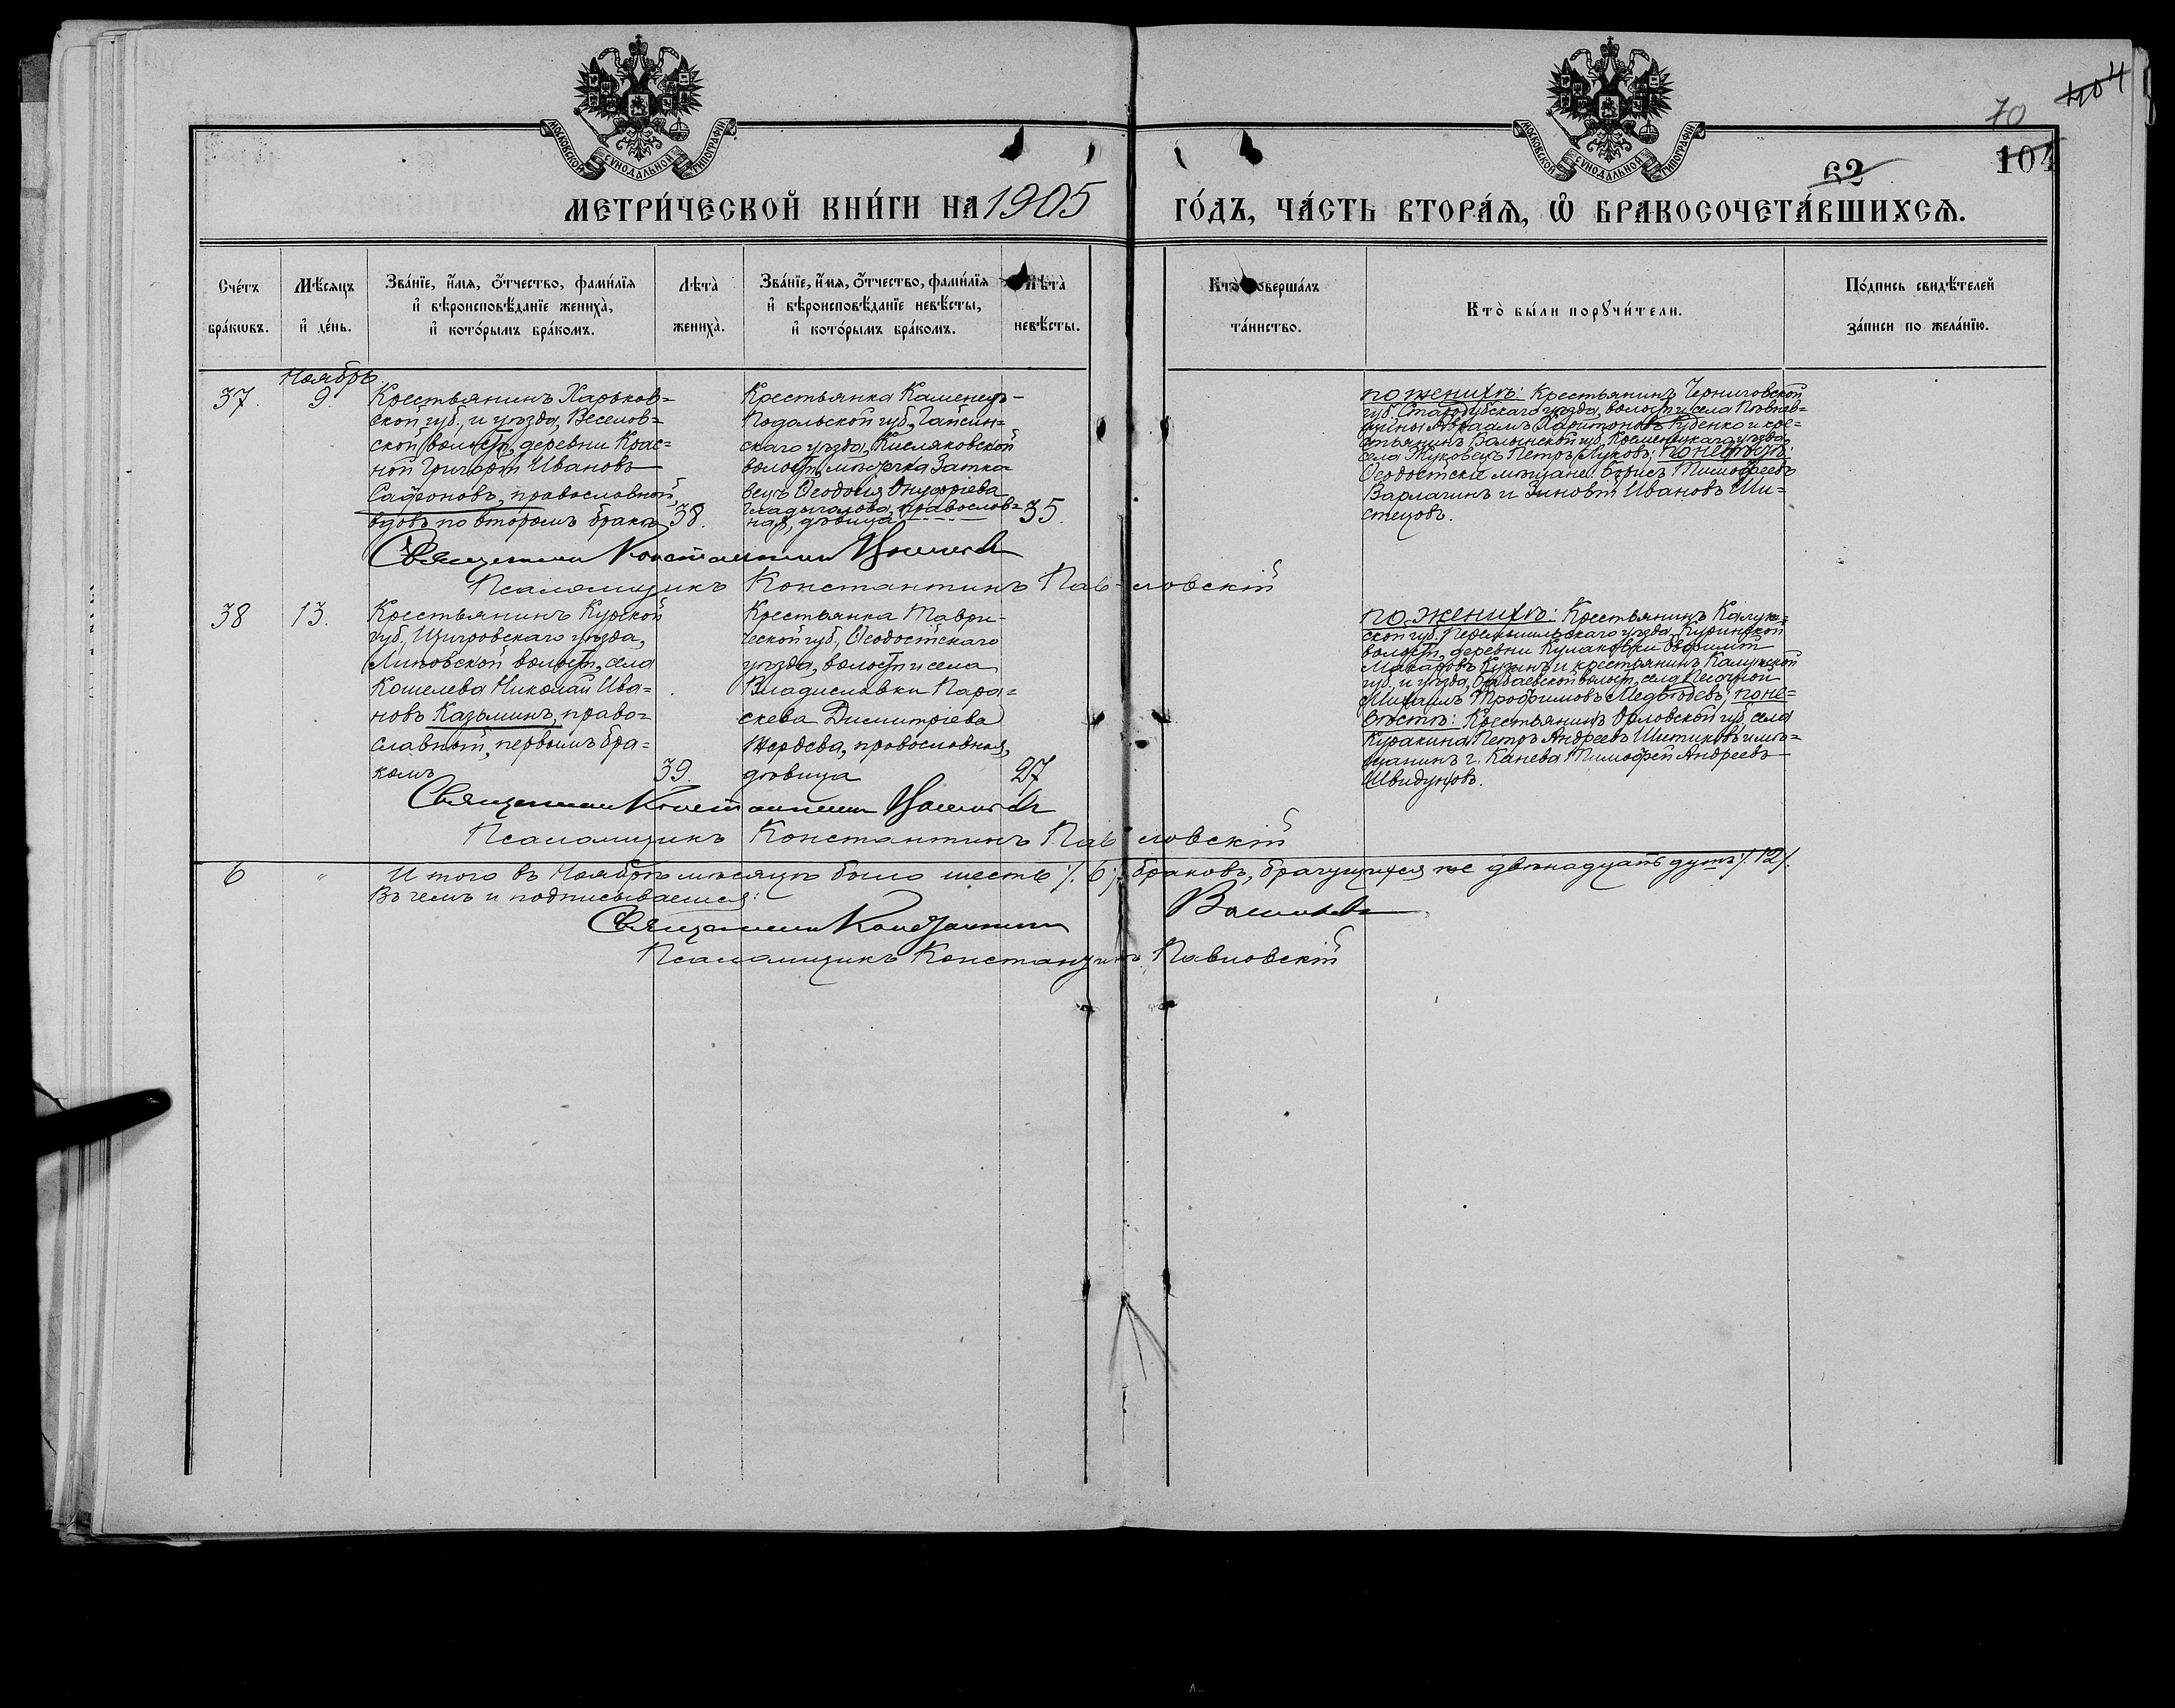 МОСКОВСКОЙ СѴНОДАЛЬНОЙ ТИПОГРАФІИ
МОСКОВСКОЙ СѴНОДАЛЬНОЙ ТИПОГРАФІИ
104
70
104
62
МЕТРИ́ЧЕСКОЙ КНИ́ГИ НА 1905
ГО́ДЪ, ЧА́СТЬ ВТОРА́Я, Ѽ БРАКОСОЧЕТА́ВШИХСЯ.
Сче́тъ
бра́кωвъ.
Мѣ́сяцъ
и҆ де́нь.
Зва́нїе, и҆́мя, ѻ҆́тчество, фами́лїя
и҆ вѣроисповѣ́данїе жениха̀,
и҆ кото́рымъ бра́комъ.
Лѣта̀
жениха̀.
Зва́нїе, и҆́мя, ѻ҆́тчество, фами́лїя
и҆ вѣроисповѣ́данїе невѣ́сты,
и҆ кото́рымъ бра́комъ.
Лѣта̀
невѣ́сты.
Кто̀ соверша́лъ
та́инство.
Кто̀ бы́ли порꙋчи́тели.
По́дпись свидѣ́телей
за́писи по жела́нїю.
Ноябрь
37.
9.
Крестьянинъ Харьков=
ской губ. и уѣзда, Веселов=
ской волости, деревни Крас=
ной Григорій Ивановъ
Сафоновъ, православной,
вдовъ по второмъ бракѣ
38.
Крестьянка Каменецъ-
Подольской губ., Гайсин=
скаго уѣзда, Кисляковской
волости, мѣстечка Затко=
вецъ Ѳеодосія Онуфріева
Гладычалова, православ=
ная, дѣвица
35.
по женихѣ: Крестьянинъ Черниговской
губ. Стародубскаго уѣзда, волости и села
Авраамъ Харитоновъ Руденко и кре=
стьянинъ Волынской губ. Кременецкаго уѣзда,
села Жуковецъ Петръ Луковъ; по невѣстѣ:
Ѳеодосійскіе мѣщане: Борисъ Тимофеевъ
Варлагинъ и Зиновій Ивановъ Ши=
стецовъ.
Священникъ Константинъ
Псаломщикъ Константинъ Павловскій
38
13.
Крестьянинъ Курской
губ., Щигровскаго уѣзда,
Липовской волости, села
Кошелева Николай Ива=
новъ Казьминъ, право=
славный, первымъ бра=
комъ
39.
Крестьянка Таври=
ческой губ., Ѳеодосійскаго
уѣзда, волости и села
Владиславки Пара=
скева Димитріева
Жердева, православная,
дѣвица
27
по женихѣ: Крестьянинъ Калуж=
ской губ. Перемышльскаго уѣзда, Куринской
волости, деревни Кулаковки
Макаровъ Кузинъ и крестьянинъ Калужской
губ. и уѣзда, Бабаевской волости, села Песочной
Михаилъ Трофимовъ Медвѣдевъ; по не=
вѣстѣ: Крестьянинъ Орловской губ., села
Куракина Петръ Андреевъ Шитиковъ и мѣ=
щанинъ г. Канева Тимофей Андреевъ
Швидуновъ.
Священникъ Константинъ
Псаломщикъ Константинъ Павловскій
6 " Итого въ Ноябрѣ мѣсяцѣ было шесть /. 6 /. браковъ, брачущихся же двѣнадцать душъ /. 12 /.
Въ чемъ и подписываемся:
Священникъ Константинъ
Псаломщикъ Константинъ Павловскій